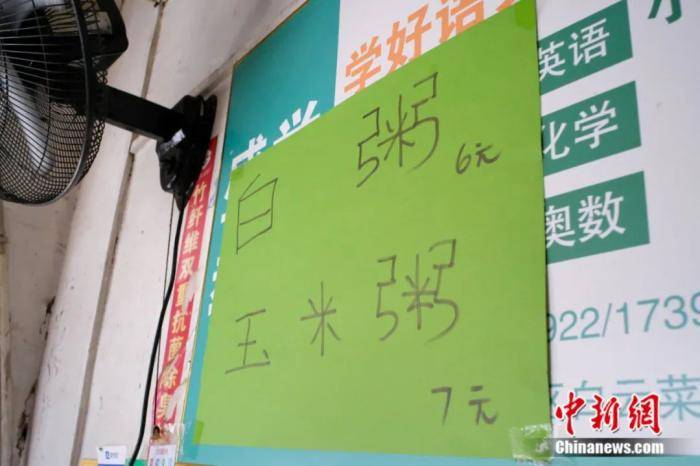 学好语
英语
化学
奥数
白 粥 6元
玉米粥
7元
竹纤维双重抗菌除臭
922/1739
白云菜
中新网
Chinanews.com